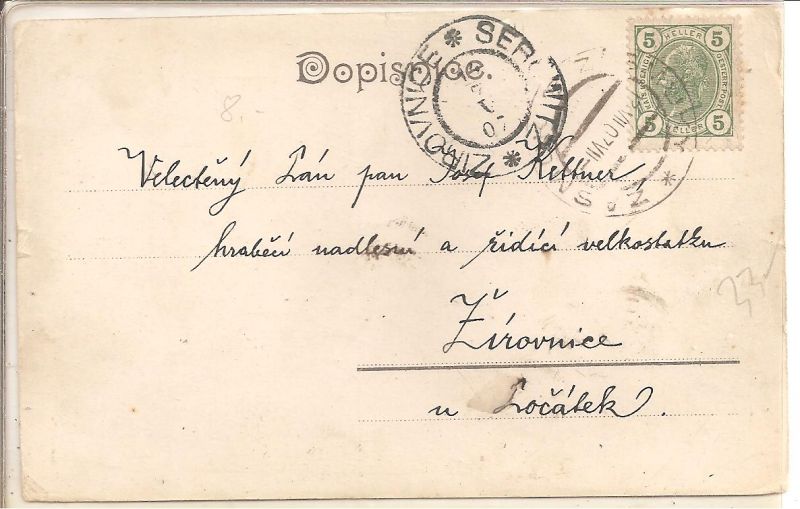 Dopisnice.
SEROWITZ * ŽIROVNICE *
5 HELLER 5
5 HELLER 5
8.-
Velectěný Pán pan Josef Kettner
hraběcí nadlesní a řidící velkostatku
Žírovnice
u Počátek.